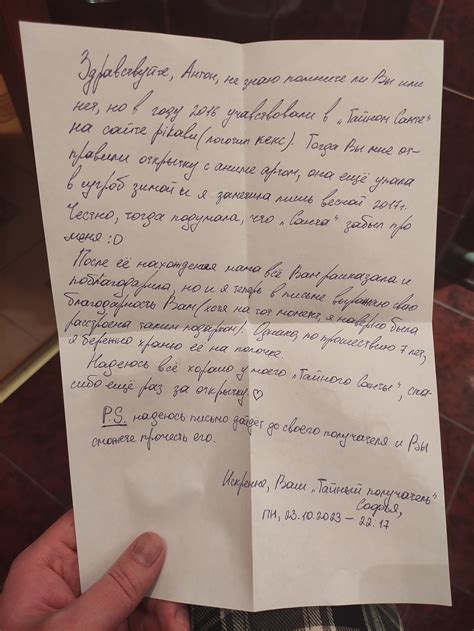 Здравствуйте, Антон, не знаю помните ли Вы или
нет, но в году 2016 учавствовали в „Тайном Санте"
на сайте pikabu (логотип кекс). Тогда Вы мне от-
правили открытку с аниме артом, она ещё упала
в сугроб зимой и я заметила лишь весной 2017г.
Честно, тогда подумала, что „Санта" забыл про
меня :D
После её нахождения мама всё Вам рассказала и
поблагодарила, но и я теперь в письме выражаю свою
благодарность Вам (хотя на тот момент, я наверно была
расстроена таким подарком). Однако, по прошествию 7 лет,
я бережно храню её на полочке.
Надеюсь всё хорошо у моего „Тайного Санты", спа-
сибо ещё раз за открытку ♡
P.S. надеюсь письмо дойдёт до своего получателя и Вы
сможете прочесть его.
Искренне, Ваш „Тайный получатель"
Софья,
ПН, 23.10.2023 – 22.17